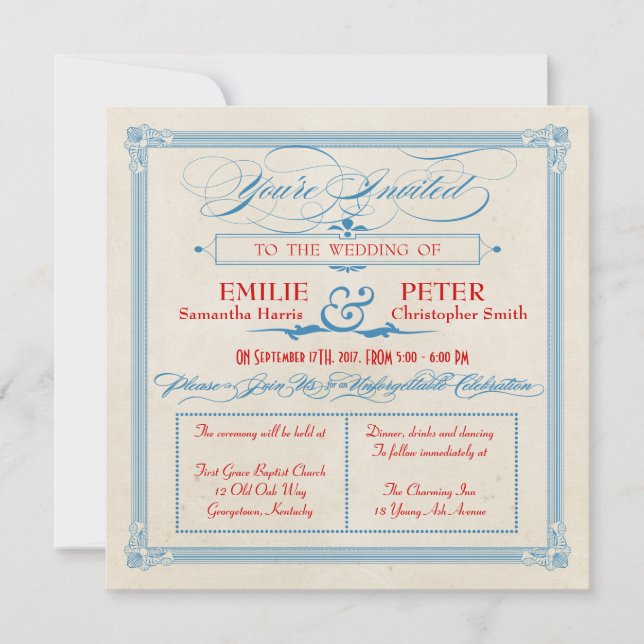 You're Invited
TO THE WEDDING OF
EMILIE & PETER
Samantha Harris Christopher Smith
ON SEPTEMBER 17TH, 2017, FROM 5:00 - 6:00 PM
Please Join Us for an Unforgettable Celebration
The ceremony will be held at
First Grace Baptist Church
12 Old Oak Way
Georgetown, Kentucky
Dinner, drinks and dancing
To follow immediately at
The Charming Inn
18 Young Ash Avenue